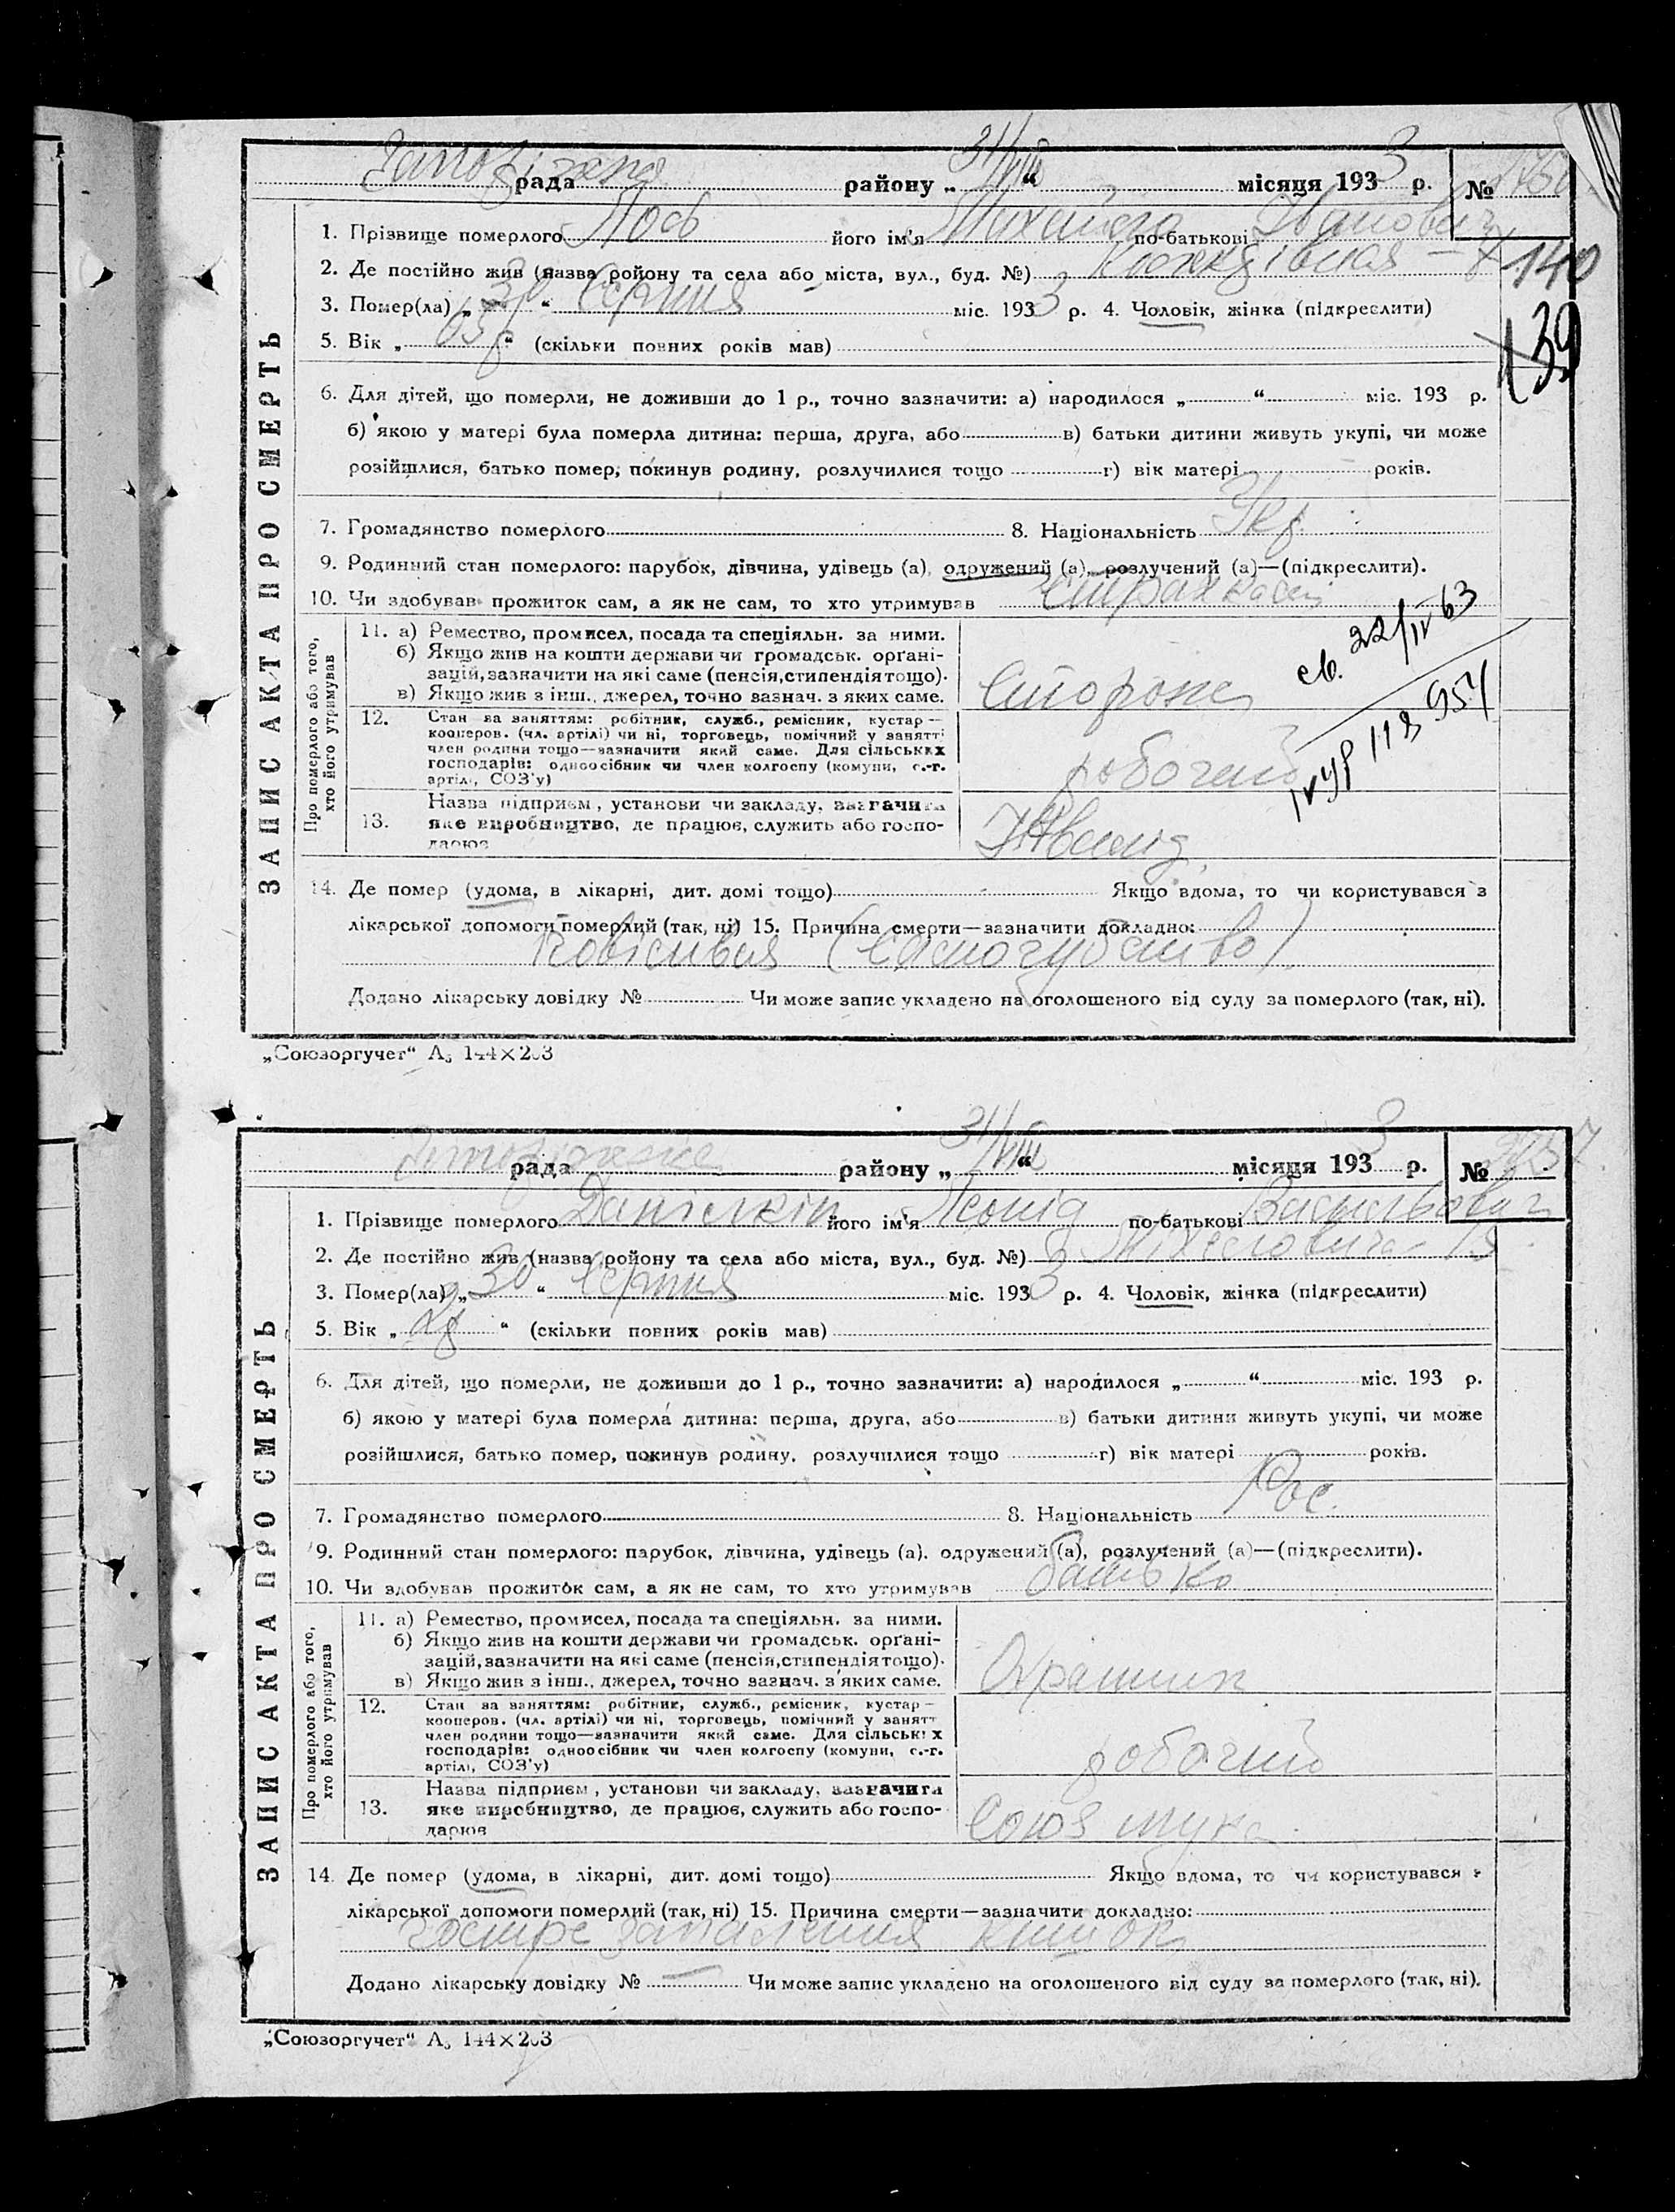 рада району „ 31/VIII “ місяця 1933 р. №
1. Прізвище померлого Лось його ім'я Михайло по-батькові Іванович
2. Де постійно жив (назва ройону та села або міста, вул., буд. №)
140
3. Помер(ла) „ 30 “ Серпня міс. 1933 р. 4. Чоловік, жінка (підкреслити)
5. Вік „ 65 р “ (скільки повних років мав)
139
6. Для дітей, що померли, не доживши до 1 р., точно зазначити: а) народилося „ “ міс. 193 р.
б) якою у матері була померла дитина: перша, друга, або в) батьки дитини живуть укупі, чи може
розійшлися, батько помер, покинув родину, розлучилися тощо г) вік матері років.
7. Громадянство померлого 8. Національність Укр.
9. Родинний стан померлого: парубок, дівчина, удівець (а), одружений (а), розлучений (а)—(підкреслити).
10. Чи здобував прожиток сам, а як не сам, то хто утримував Страхкаса
ЗАПИС АКТА ПРО СМЕРТЬ
Про померлого або того, хто його утримував
11. а) Ремество, промисел, посада та спеціяльн. за ними.
б) Якщо жив на кошти держави чи громадськ. орґані-
зацій, зазначити на які саме (пенсія, стипендія тощо).
в) Якщо жив з інш., джерел, точно зазнач. з яких саме.
Сторож
св. 22/IV 63
12. Стан за заняттям: робітник, служб., ремісник, кустар—
кооперов. (чл. артілі) чи ні, торговець, помічний у занятті
член родини тощо—зазначити який саме. Для сільських
господарів: одноосібник чи член колгоспу (комуни, с.-г.
артілі, СОЗ'у)
робочий
13. Назва підприєм, установи чи закладу, зазначити
яке виробництво, де працює, служить або госпо-
дарює
Інвалід
14. Де помер (удома, в лікарні, дит. домі тощо) Якщо вдома, то чи користувався з
лікарської допомоги померлий (так, ні) 15. Причина смерти—зазначити докладно:
Повісився (самогубство)
Додано лікарську довідку № Чи може запис укладено на оголошеного від суду за померлого (так, ні).
„Союзоргучет“ А₅ 144×203
рада району „ 31/VIII “ місяця 1933 р. №
1. Прізвище померлого Данілкін його ім'я Леонід по-батькові Васильович
2. Де постійно жив (назва ройону та села або міста, вул., буд. №)
3. Помер(ла) „ 30 “ Серпня міс. 1933 р. 4. Чоловік, жінка (підкреслити)
5. Вік „ “ (скільки повних років мав)
6. Для дітей, що померли, не доживши до 1 р., точно зазначити: а) народилося „ “ міс. 193 р.
б) якою у матері була померла дитина: перша, друга, або в) батьки дитини живуть укупі, чи може
розійшлися, батько помер, покинув родину, розлучилися тощо г) вік матері років.
7. Громадянство померлого 8. Національність Рос.
9. Родинний стан померлого: парубок, дівчина, удівець (а), одружений (а), розлучений (а)—(підкреслити).
10. Чи здобував прожиток сам, а як не сам, то хто утримував батько
ЗАПИС АКТА ПРО СМЕРТЬ
Про померлого або того, хто його утримував
11. а) Ремество, промисел, посада та спеціяльн. за ними.
б) Якщо жив на кошти держави чи громадськ. орґані-
зацій, зазначити на які саме (пенсія, стипендія тощо).
в) Якщо жив з інш., джерел, точно зазнач. з яких саме.
12. Стан за заняттям: робітник, служб., ремісник, кустар—
кооперов. (чл. артілі) чи ні, торговець, помічний у занятт
член родини тощо—зазначити який саме. Для сільських
господарів: одноосібник чи член колгоспу (комуни, с.-г.
артілі, СОЗ'у)
робочий
13. Назва підприєм, установи чи закладу, зазначити
яке виробництво, де працює, служить або госпо-
дарює
Союз мука
14. Де помер (удома, в лікарні, дит. домі тощо) Якщо вдома, то чи користувався з
лікарської допомоги померлий (так, ні) 15. Причина смерти—зазначити докладно:
гостре запалення кишок
Додано лікарську довідку № — Чи може запис укладено на оголошеного від суду за померлого (так, ні).
„Союзоргучет“ А₅ 144×203